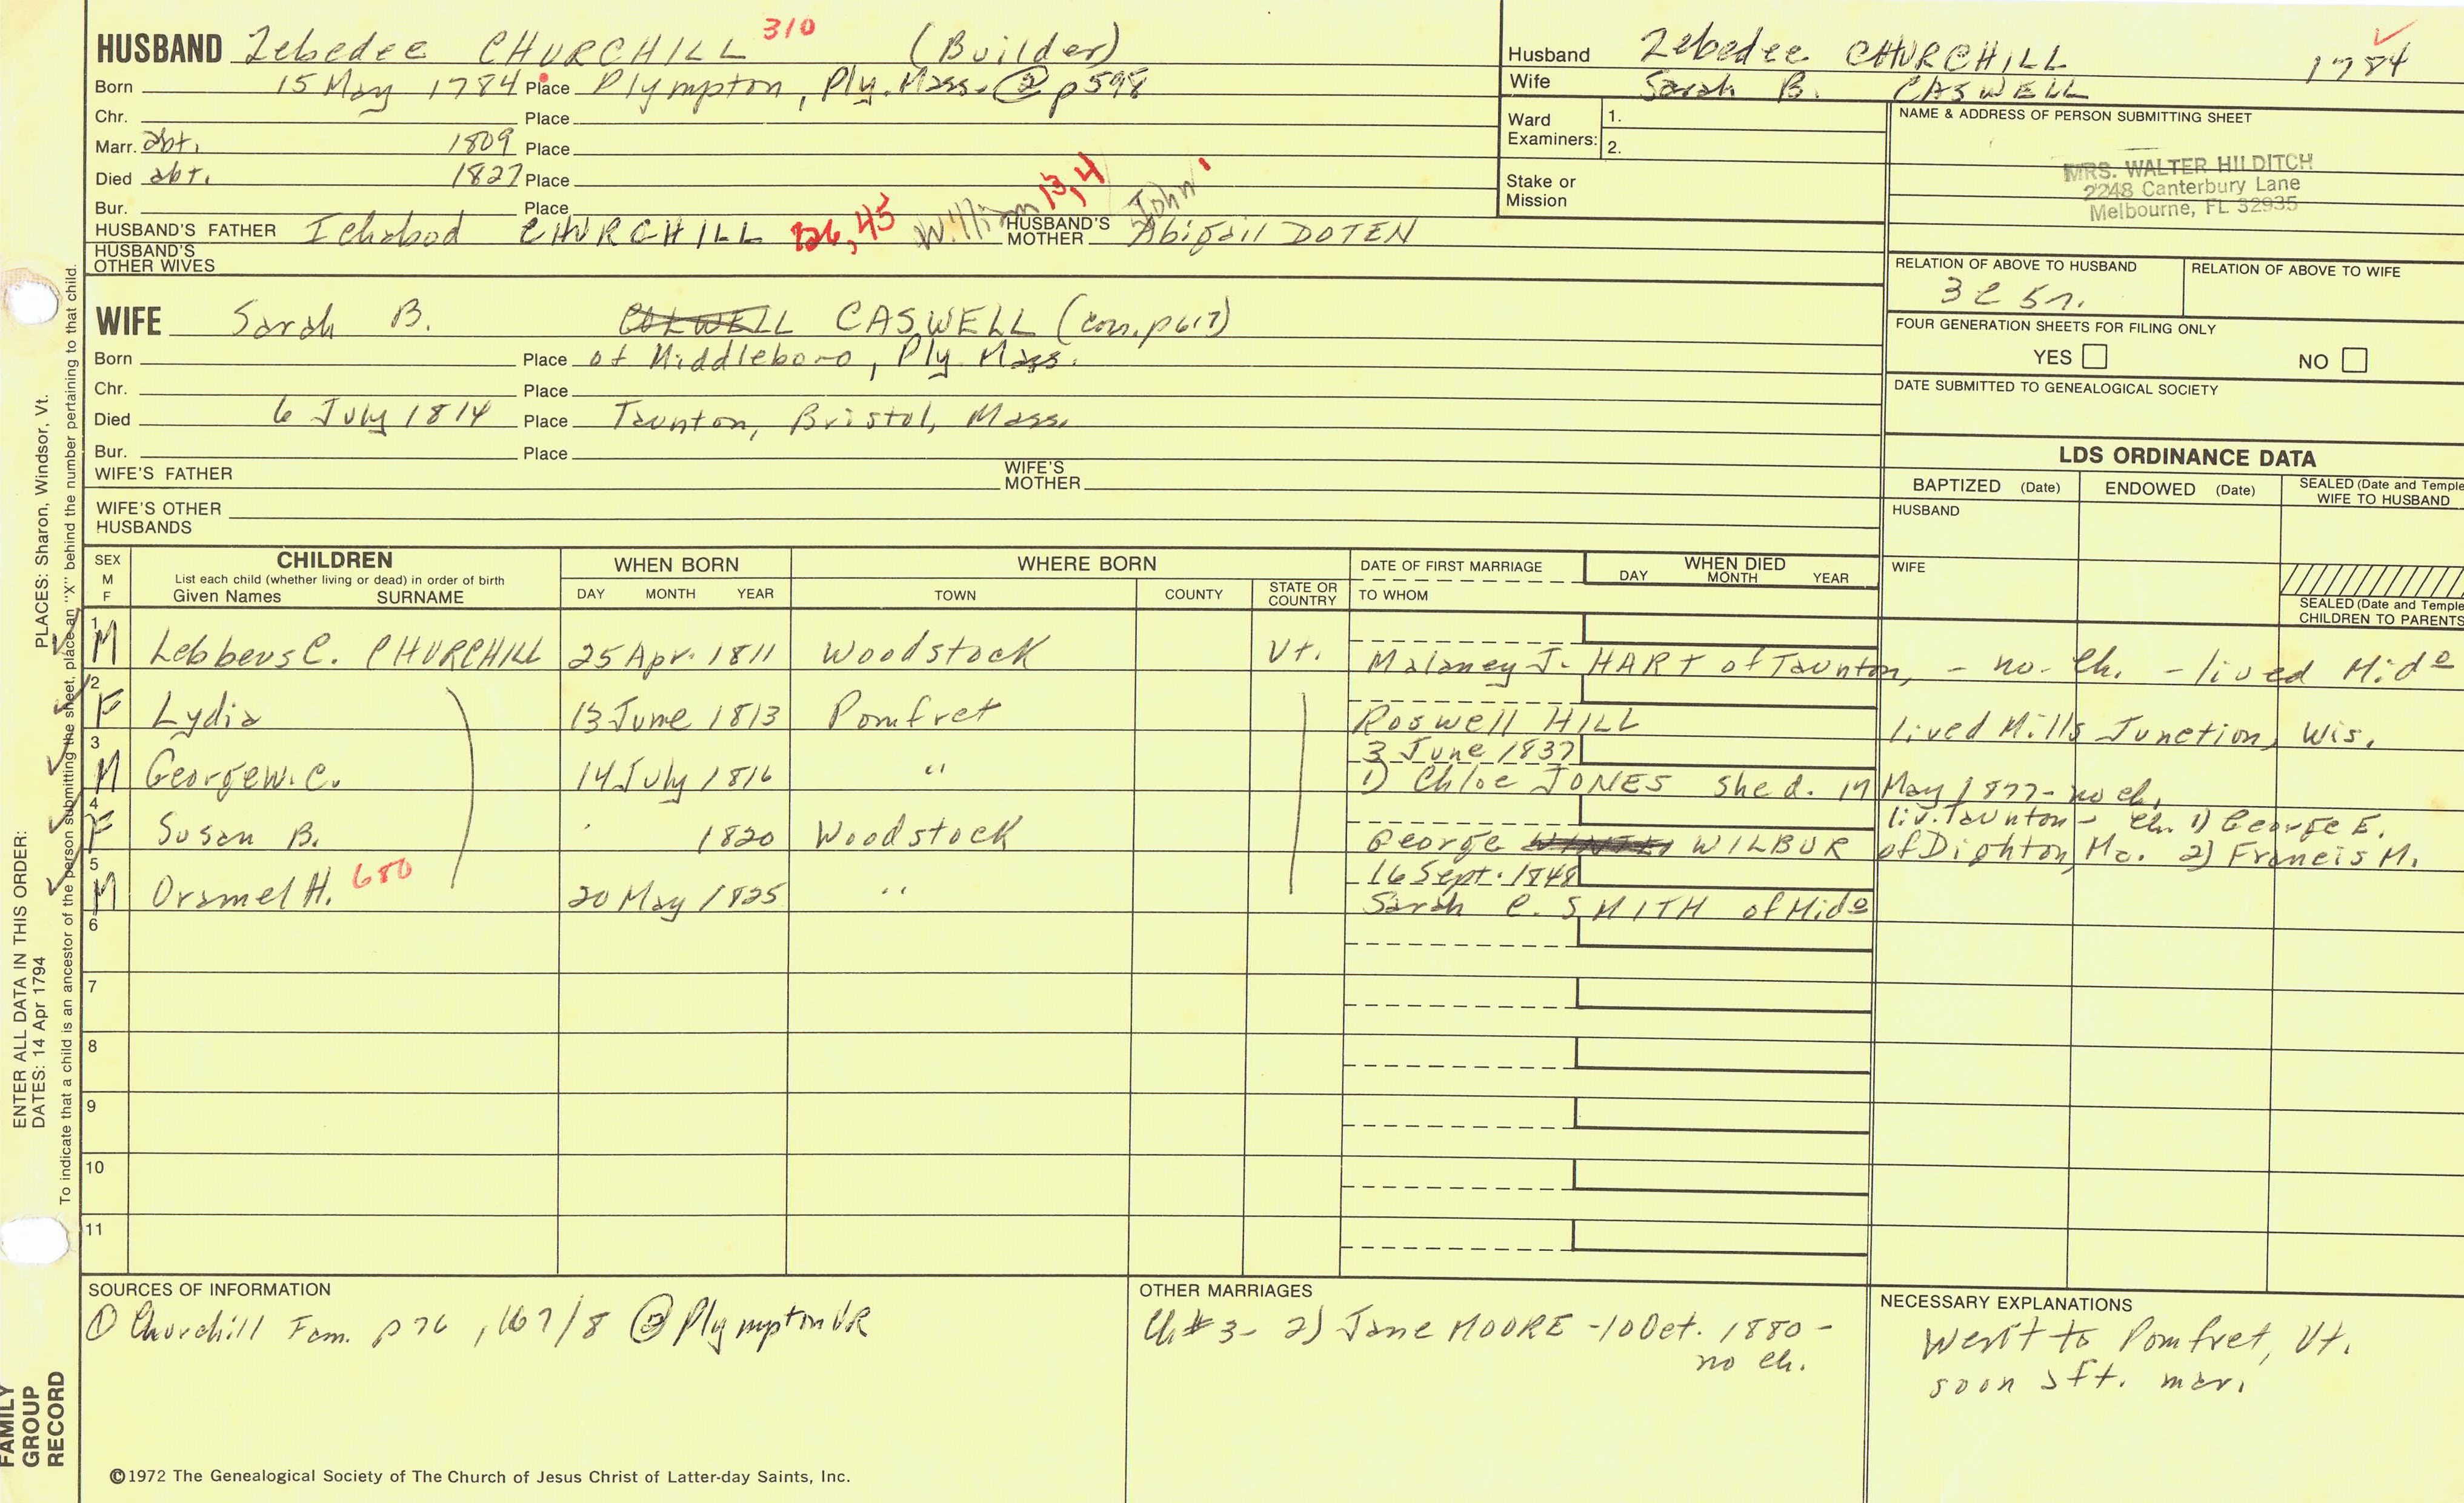 HUSBAND Zebedee CHURCHILL 310 (Builder)
Born 15 May 1784 Place Plympton, Ply. Mass. ② p598
Chr. Place
Marr. abt. 1809 Place
Died abt. 1827 Place
Bur. Place
HUSBAND'S FATHER Ichabod CHURCHILL 126, 45 William 13, 4 John 1 HUSBAND'S MOTHER Abigail DOTEN
HUSBAND'S OTHER WIVES
Husband Zebedee CHURCHILL 1784
Wife Sarah B. CASWELL
Ward Examiners: 1.
2.
Stake or Mission
NAME & ADDRESS OF PERSON SUBMITTING SHEET
MRS. WALTER HILDITCH
2248 Canterbury Lane
Melbourne, FL 32935
RELATION OF ABOVE TO HUSBAND RELATION OF ABOVE TO WIFE
3 c 5 r.
FOUR GENERATION SHEETS FOR FILING ONLY
YES NO
DATE SUBMITTED TO GENEALOGICAL SOCIETY
WIFE Sarah B. CASWELL (corr. p617)
Born Place of Middleboro, Ply Mass.
Chr. Place
Died 6 July 1814 Place Taunton, Bristol, Mass.
Bur. Place
WIFE'S FATHER WIFE'S MOTHER
WIFE'S OTHER HUSBANDS
LDS ORDINANCE DATA
BAPTIZED (Date) ENDOWED (Date) SEALED (Date and Temple WIFE TO HUSBAND
HUSBAND
WIFE
SEALED (Date and Temple CHILDREN TO PARENTS
SEX M F CHILDREN WHEN BORN WHERE BORN DATE OF FIRST MARRIAGE WHEN DIED
List each child (whether living or dead) in order of birth
Given Names SURNAME DAY MONTH YEAR TOWN COUNTY STATE OR COUNTRY TO WHOM DAY MONTH YEAR
1 M Lebbeus C. CHURCHILL 25 Apr. 1811 Woodstock Vt. Malaney J. HART of Taunton, - no ch. - lived Mido
2 F Lydia 13 June 1813 Pomfret Roswell HILL lived Mills Junction, Wis.
3 M George W. C. 14 July 1816 " 3 June 1837
1) Chloe JONES she d. 17 May 1877 - no ch.
4 F Susan B. 1820 Woodstock George WILBUR of Dighton, Ma. liv. Taunton - ch. 1) George E. 2) Francis M.
5 M Oramel H. 680 20 May 1825 " 16 Sept. 1848
Sarah C. SMITH of Mido
6
7
8
9
10
11
SOURCES OF INFORMATION
① Churchill Fam. p 76, 167/8 ② Plympton VR
OTHER MARRIAGES
Ch # 3 - 2) Jane MOORE - 10 Oct. 1880 -
no ch.
NECESSARY EXPLANATIONS
Went to Pomfret, Vt.
soon aft. mar.
©1972 The Genealogical Society of The Church of Jesus Christ of Latter-day Saints, Inc.
ENTER ALL DATA IN THIS ORDER:
DATES: 14 Apr 1794 PLACES: Sharon, Windsor, Vt.
To indicate that a child is an ancestor of the person submitting the sheet, place an "X" behind the number pertaining to that child.
FAMILY GROUP RECORD